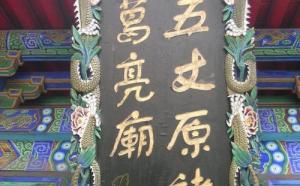 五丈原
葛亮廟